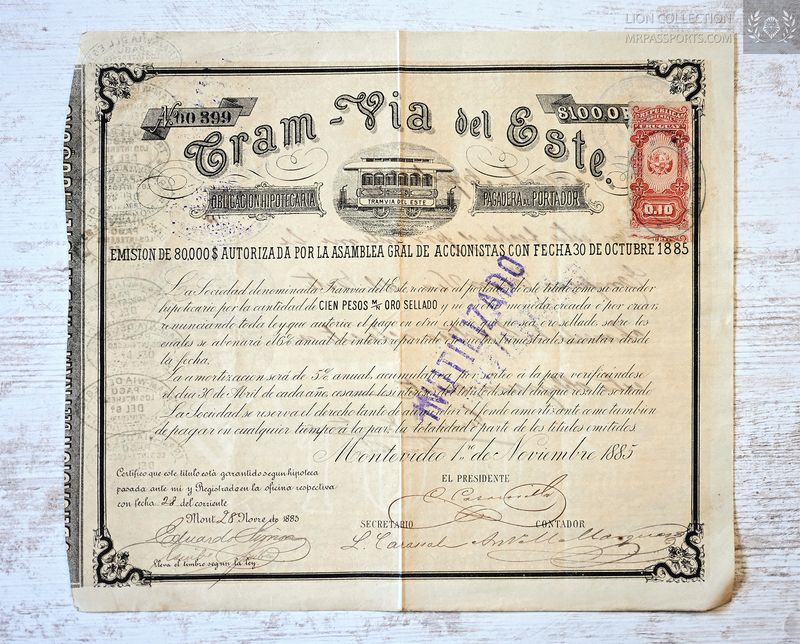 LION COLLECTION
MRPASSPORTS.COM
No. 00399
$100.0
Tram-Via del Este.
REPUBLICA
URUGUAY
0.10
OBLIGACION HIPOTECARIA
TRAMVIA DEL ESTE
PAGADERA AL PORTADOR
EMISION DE 80.000 $ AUTORIZADA POR LA ASAMBLEA GRAL DE ACCIONISTAS CON FECHA 30 DE OCTUBRE 1885
La Sociedad denominada Tranvia del Este reconoce al portador de este titulo como su acreedor
hipotecario por la cantidad de CIEN PESOS M/N ORO SELLADO y ni con moneda creada ó por crear,
renunciando toda ley que autorice el pago en otra especie que no sea oro sellado, sobre los
cuales se abonará el 6% anual de interés repartido en cuotas trimestrales á contar desde
la fecha.
La amortizacion será de 5% anual, acumulativa por sorteo á la par verificandose
el dia 30 de Abril de cada año, cesando los intereses del titulo desde el dia que resulte sorteado
La Sociedad se reserva el derecho tanto de aumentar el fondo amortizante como tambien
de pagar en cualquier tiempo á la par la totalidad ó parte de los titulos emitidos.
INUTILIZADO
Montevideo 1ro. de Noviembre 1885
Certifico que este titulo está garantido segun hipoteca
pasada ante mi y Registrado en la oficina respectiva
con fecha 28 del corriente
Mont. 28 Novre de 1885
EL PRESIDENTE
SECRETARIO
CONTADOR
Eduardo
Lleva el timbre segun la ley.